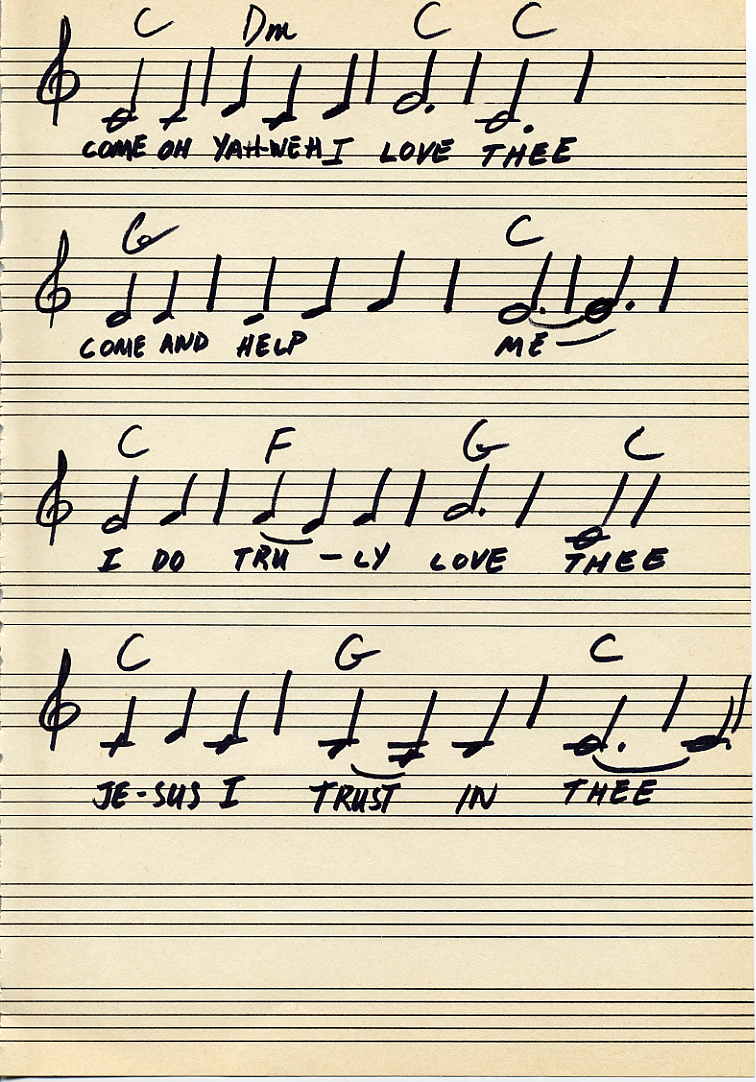 C Dm C C
COME OH YAH-WEH I LOVE THEE
G C
COME AND HELP ME —
C F G C
I DO TRU -LY LOVE THEE
C G C
JE-SUS I TRUST IN THEE